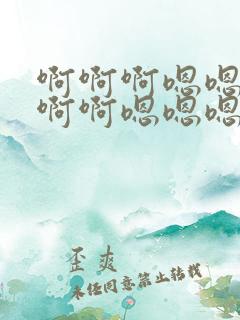 啊啊啊嗯嗯
啊啊嗯嗯嗯
歪爽
未经同意禁止转载